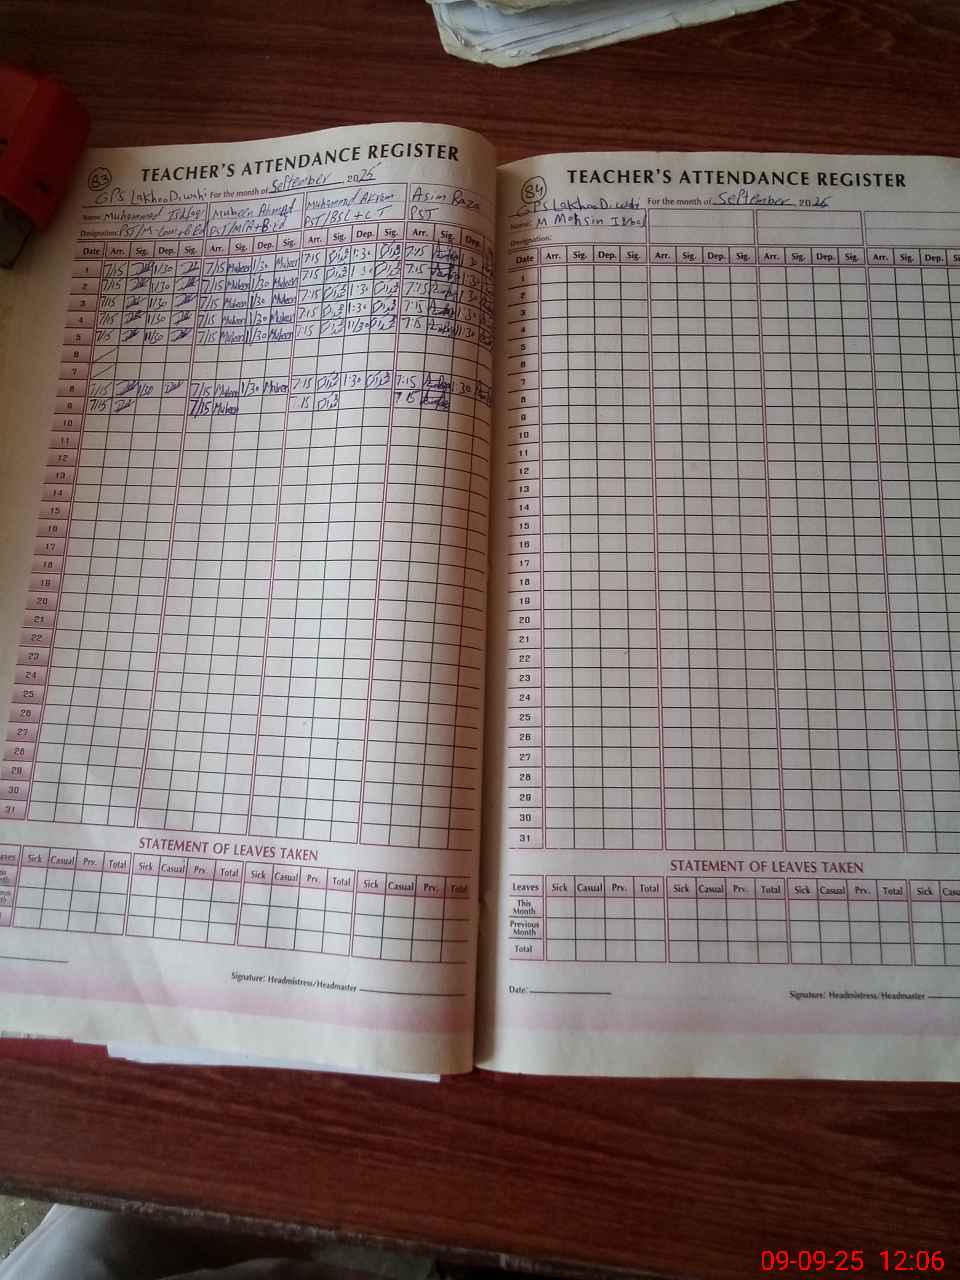 83
TEACHER'S ATTENDANCE REGISTER
GPS Lakhoo Diwahi For the month of September 2025
Name: Muhammad Mubeen Ahmad Muhammad Akram Asim Raza
Designation: PST/M.A+B.Ed PST/BSc+CT PST
Date Arr. Sig. Dep. Sig. Arr. Sig. Dep. Sig. Arr. Sig. Dep. Sig. Arr. Sig. Dep.
1 7/15 1/30 7/15 Mubeen 1/30 Mubeen 7:15 1:30 7:15
2 7/15 1/30 7/15 Mubeen 1/30 Mubeen 7:15 1:30 7:15
3 7/15 1/30 7/15 Mubeen 1/30 Mubeen 7:15 1:30 7:15
4 7/15 1/30 7/15 Mubeen 1/30 Mubeen 7:15 1:30 7:15
5 7/15 11/30 7/15 Mubeen 1/30 Mubeen 7:15 11/30 7:15 11:30
6
7
8 7/15 1/30 7/15 Mubeen 1/30 Mubeen 7:15 1:30 7:15 1:30
9 7/15 7/15 Mubeen 7:15 7:15
10
11
12
13
14
15
16
17
18
19
20
21
22
23
24
25
26
27
28
29
30
31
STATEMENT OF LEAVES TAKEN
Sick Casual Prv. Total Sick Casual Prv. Total Sick Casual Prv. Total Sick Casual Prv. Total
Signature: Headmistress/Headmaster
84
TEACHER'S ATTENDANCE REGISTER
GPS Lakhoo Diwahi For the month of September 2025
Name: M Mohsin Iqbal
Designation:
Date Arr. Sig. Dep. Sig. Arr. Sig. Dep. Sig. Arr. Sig. Dep. Sig. Arr. Sig. Dep.
1
2
3
4
5
6
7
8
9
10
11
12
13
14
15
16
17
18
19
20
21
22
23
24
25
26
27
28
29
30
31
STATEMENT OF LEAVES TAKEN
Leaves Sick Casual Prv. Total Sick Casual Prv. Total Sick Casual Prv. Total Sick
This Month
Previous Month
Total
Date:
Signature: Headmistress/Headmaster
09-09-25 12:06